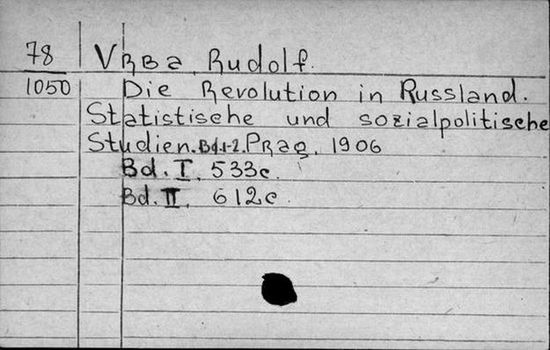 78 Vrba Rudolf.
1050 Die Revolution in Russland.
Statistische und sozialpolitische
Studien. Bd. 1-2. Prag, 1906
Bd. I. 533c.
Bd. II. 612c.